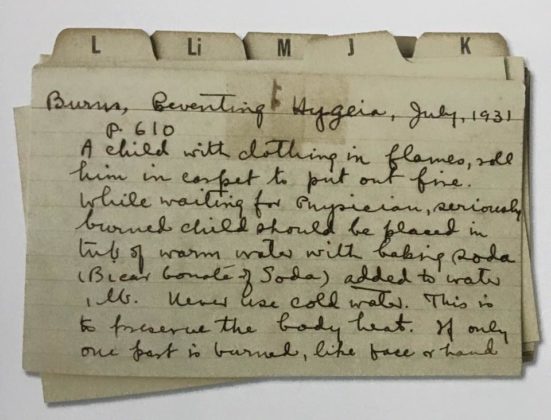 L Li M J K
Burns, Preventing Hygeia, July, 1931
P. 610
A child with clothing in flames, roll
him in carpet to put out fire.
While waiting for Physician, seriously
burned child should be placed in
tub of warm water with baking soda
(Bicarbonate of Soda) added to water
1 lb. Never use cold water. This is
to preserve the body heat. If only
one part is burned, like face or hand